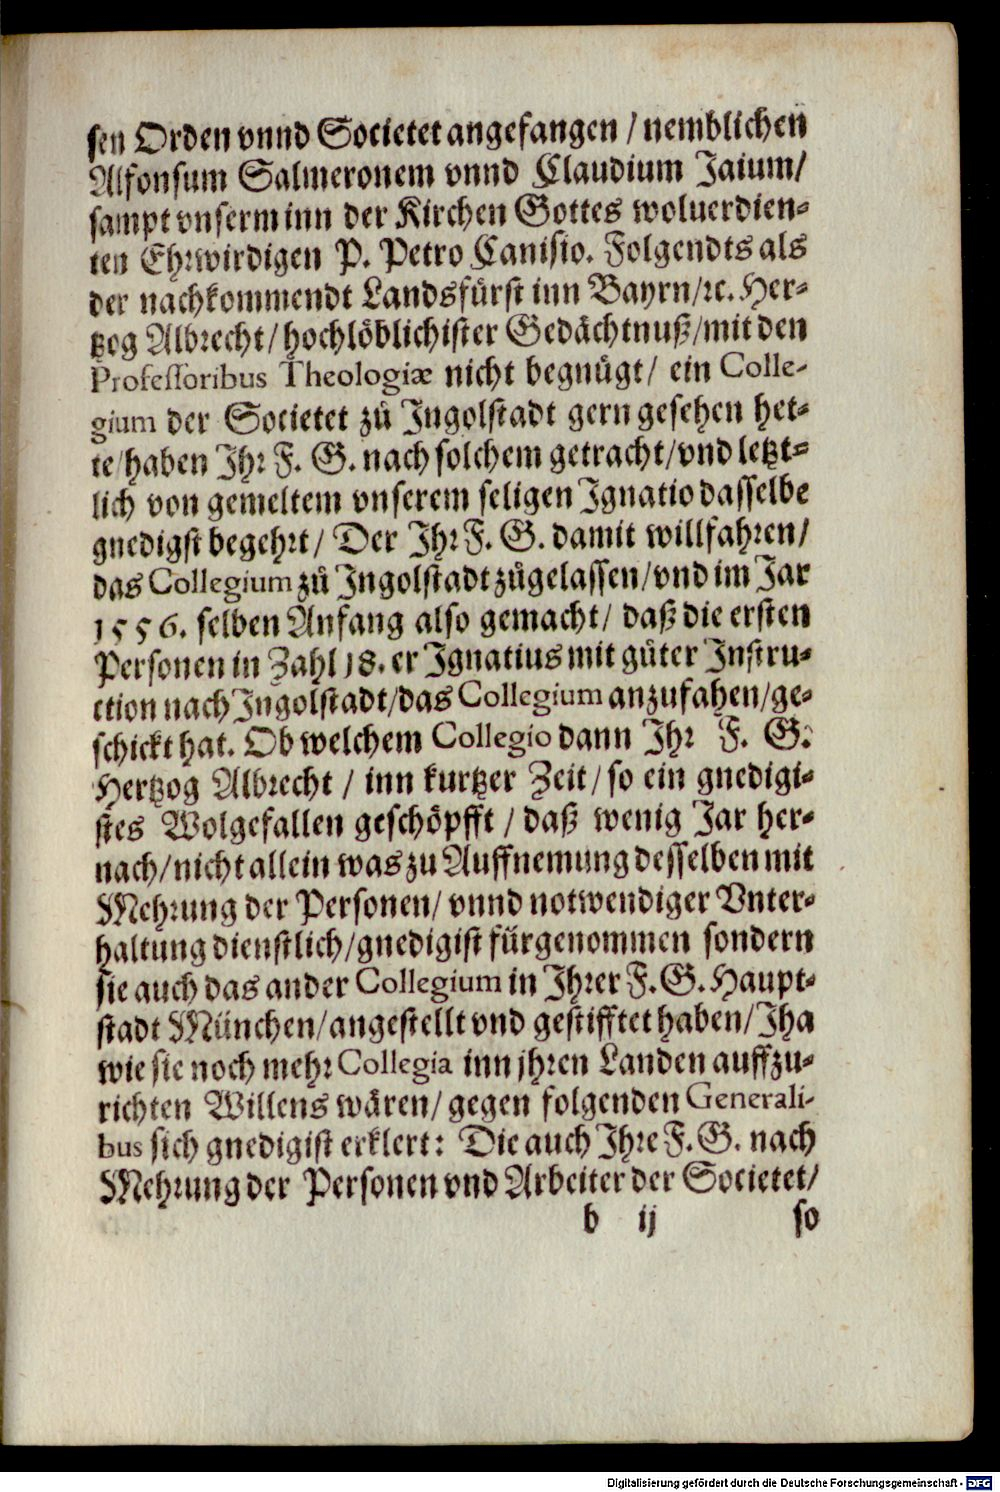 sen Orden vnnd Societet angefangen / nemblichen
Alfonsum Salmeronem vnnd Claudium Jaium/
sampt vnserm inn der Kirchen Gottes woluerdien-
ten Ehrwirdigen P. Petro Canisio. Folgendts als
der nachkommendt Landsfürst inn Bayrn/ꝛc. Her-
tzog Albrecht/hochlöblichister Gedächtnuß/mit den
Professoribus Theologiæ nicht begnügt/ ein Colle-
gium der Societet zů Ingolstadt gern gesehen het-
te/haben Ihr F. G. nach solchem getracht/vnd letzt-
lich von gemeltem vnserem seligen Ignatio dasselbe
gnedigst begehrt/ Der Ihr F. G. damit willfahren/
das Collegium zů Ingolstadt zůgelassen/vnd im Jar
1556. selben Anfang also gemacht/ daß die ersten
Personen in Zahl 18. er Ignatius mit gůter Instru-
ction nach Ingolstadt/das Collegium anzufahen/ge-
schickt hat. Ob welchem Collegio dann Ihr F. G.
Hertzog Albrecht / inn kurtzer Zeit/so ein gnedigi-
stes Wolgefallen geschöpfft / daß wenig Jar her-
nach/nicht allein was zu Auffnemung desselben mit
Mehrung der Personen/ vnnd notwendiger Vnter-
haltung dienstlich/gnedigist fürgenommen sondern
sie auch das ander Collegium in Ihrer F. G. Haupt-
stadt München/angestellt vnd gestifftet haben/Iha
wie sie noch mehr Collegia inn jhren Landen auffzu-
richten Willens wären/ gegen folgenden Generali-
bus sich gnedigist erklert: Die auch Ihre F. G. nach
Mehrung der Personen vnd Arbeiter der Societet/
b ij so
Digitalisierung gefördert durch die Deutsche Forschungsgemeinschaft - DFG